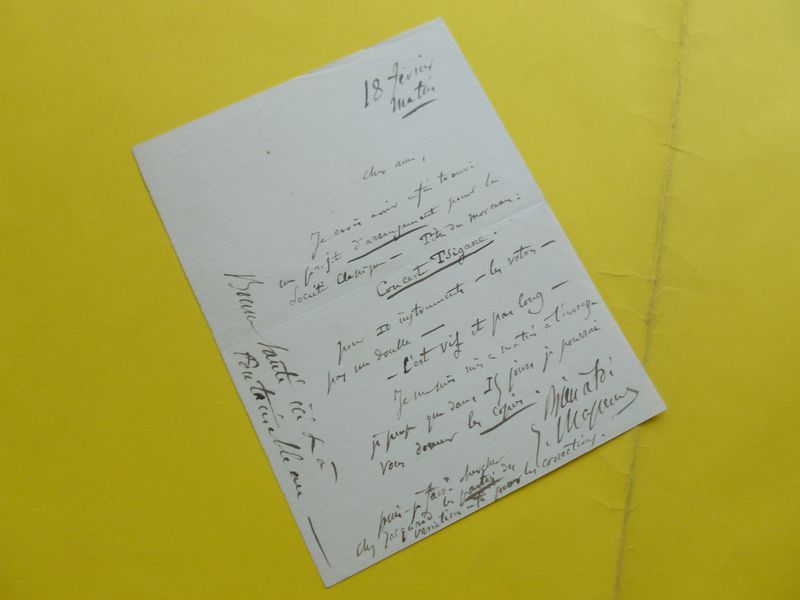 18 février
matin
cher ami,
Je crois avoir enfin trouvé
un projet d'arrangement pour la
Société Classique — Titre du morceau:
Concert Tsigane.
pour 10 instruments — les votres —
pas un double —
— C'est vif et pas long —
Je me suis mis ce matin à l'ouvrage
je pense que dans 15 jours je pourrai
vous donner les copies.
Bien à toi
puis-je faire chercher
chez Jacquard les parties des
variations pour les corrections.
Bonne santé ici à
Fontainebleau